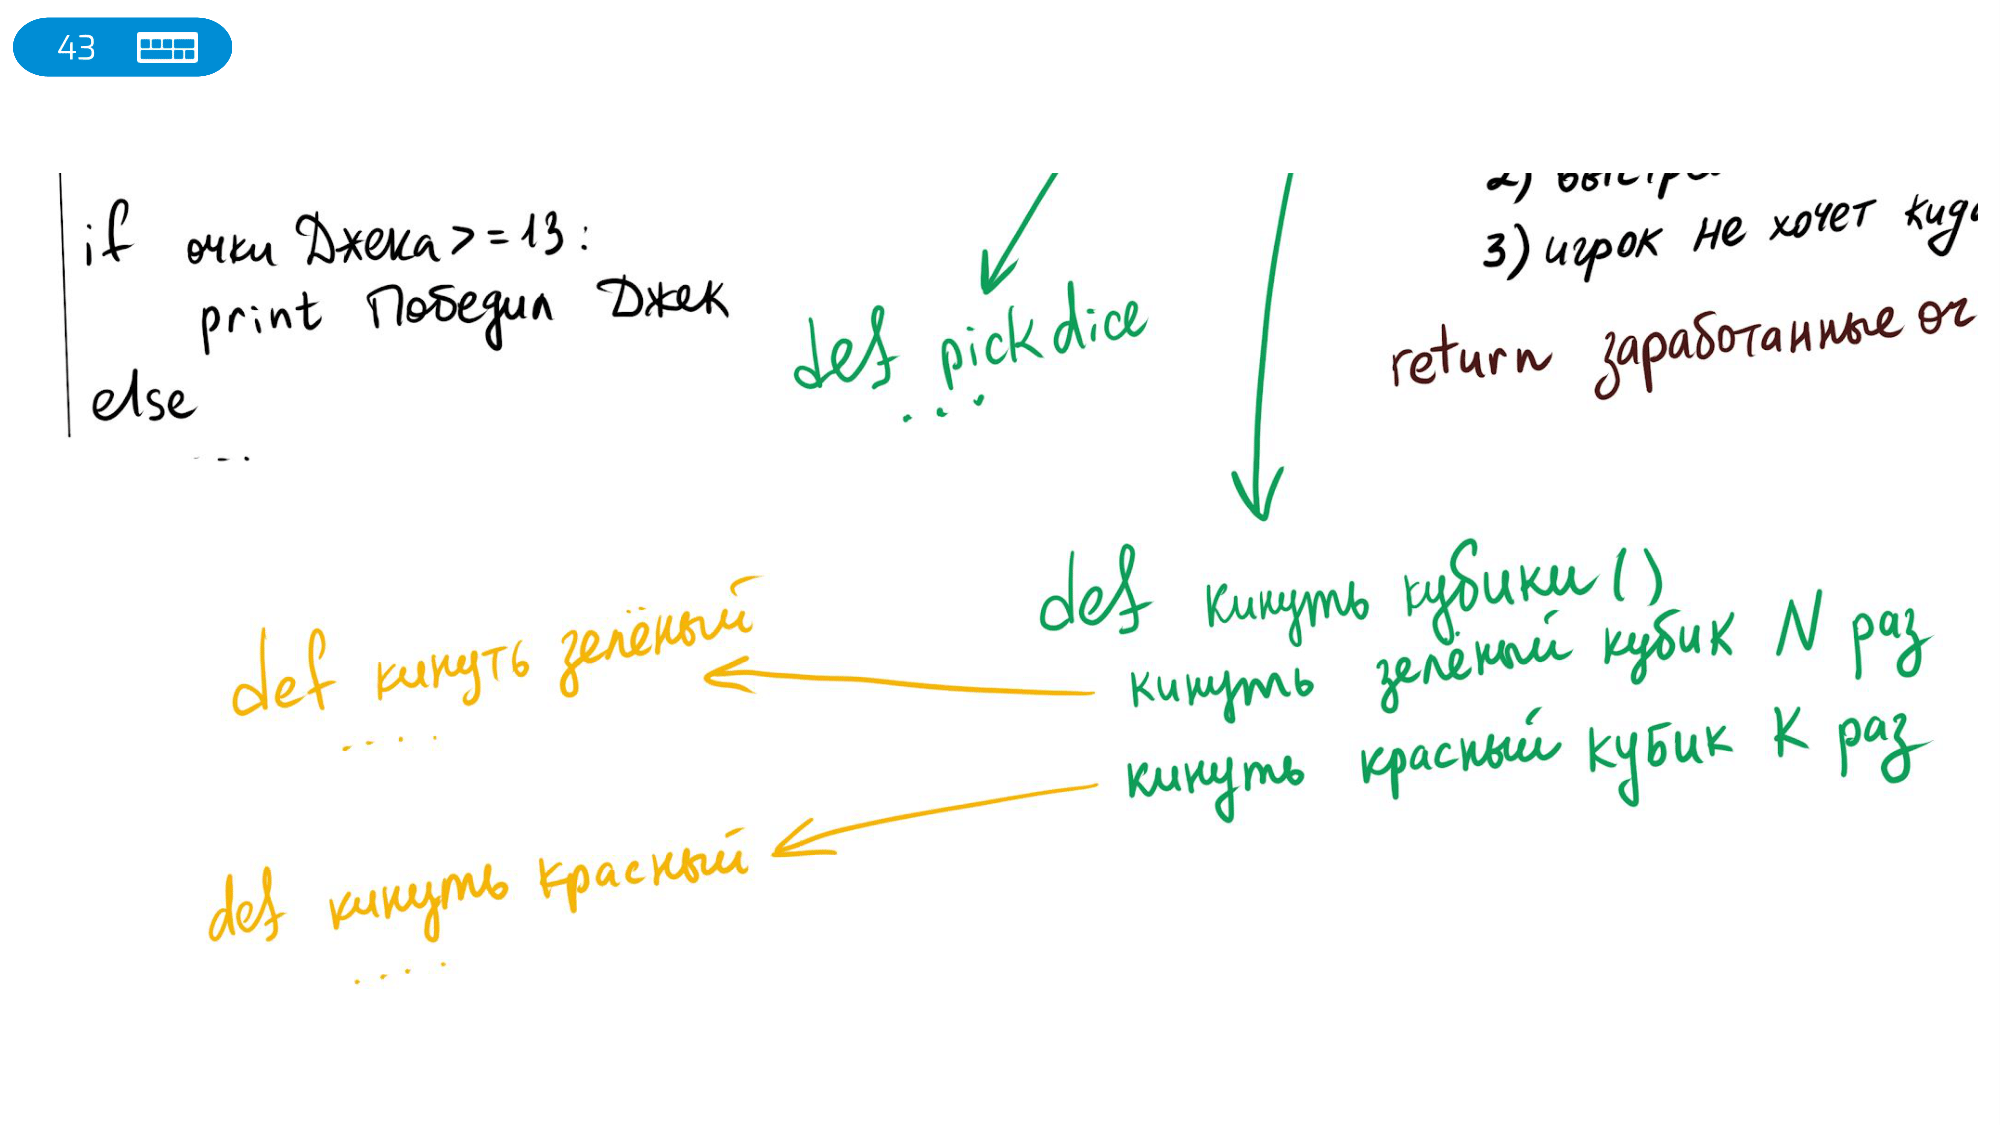 43
if очки Джека >= 13:
print Победил Джек
else
def pick dice
...
3) игрок не хочет
return заработанные
def кинуть кубики ()
кинуть зелёный кубик N раз
кинуть красный кубик K раз
def кинуть зелёный
....
def кинуть красный
....